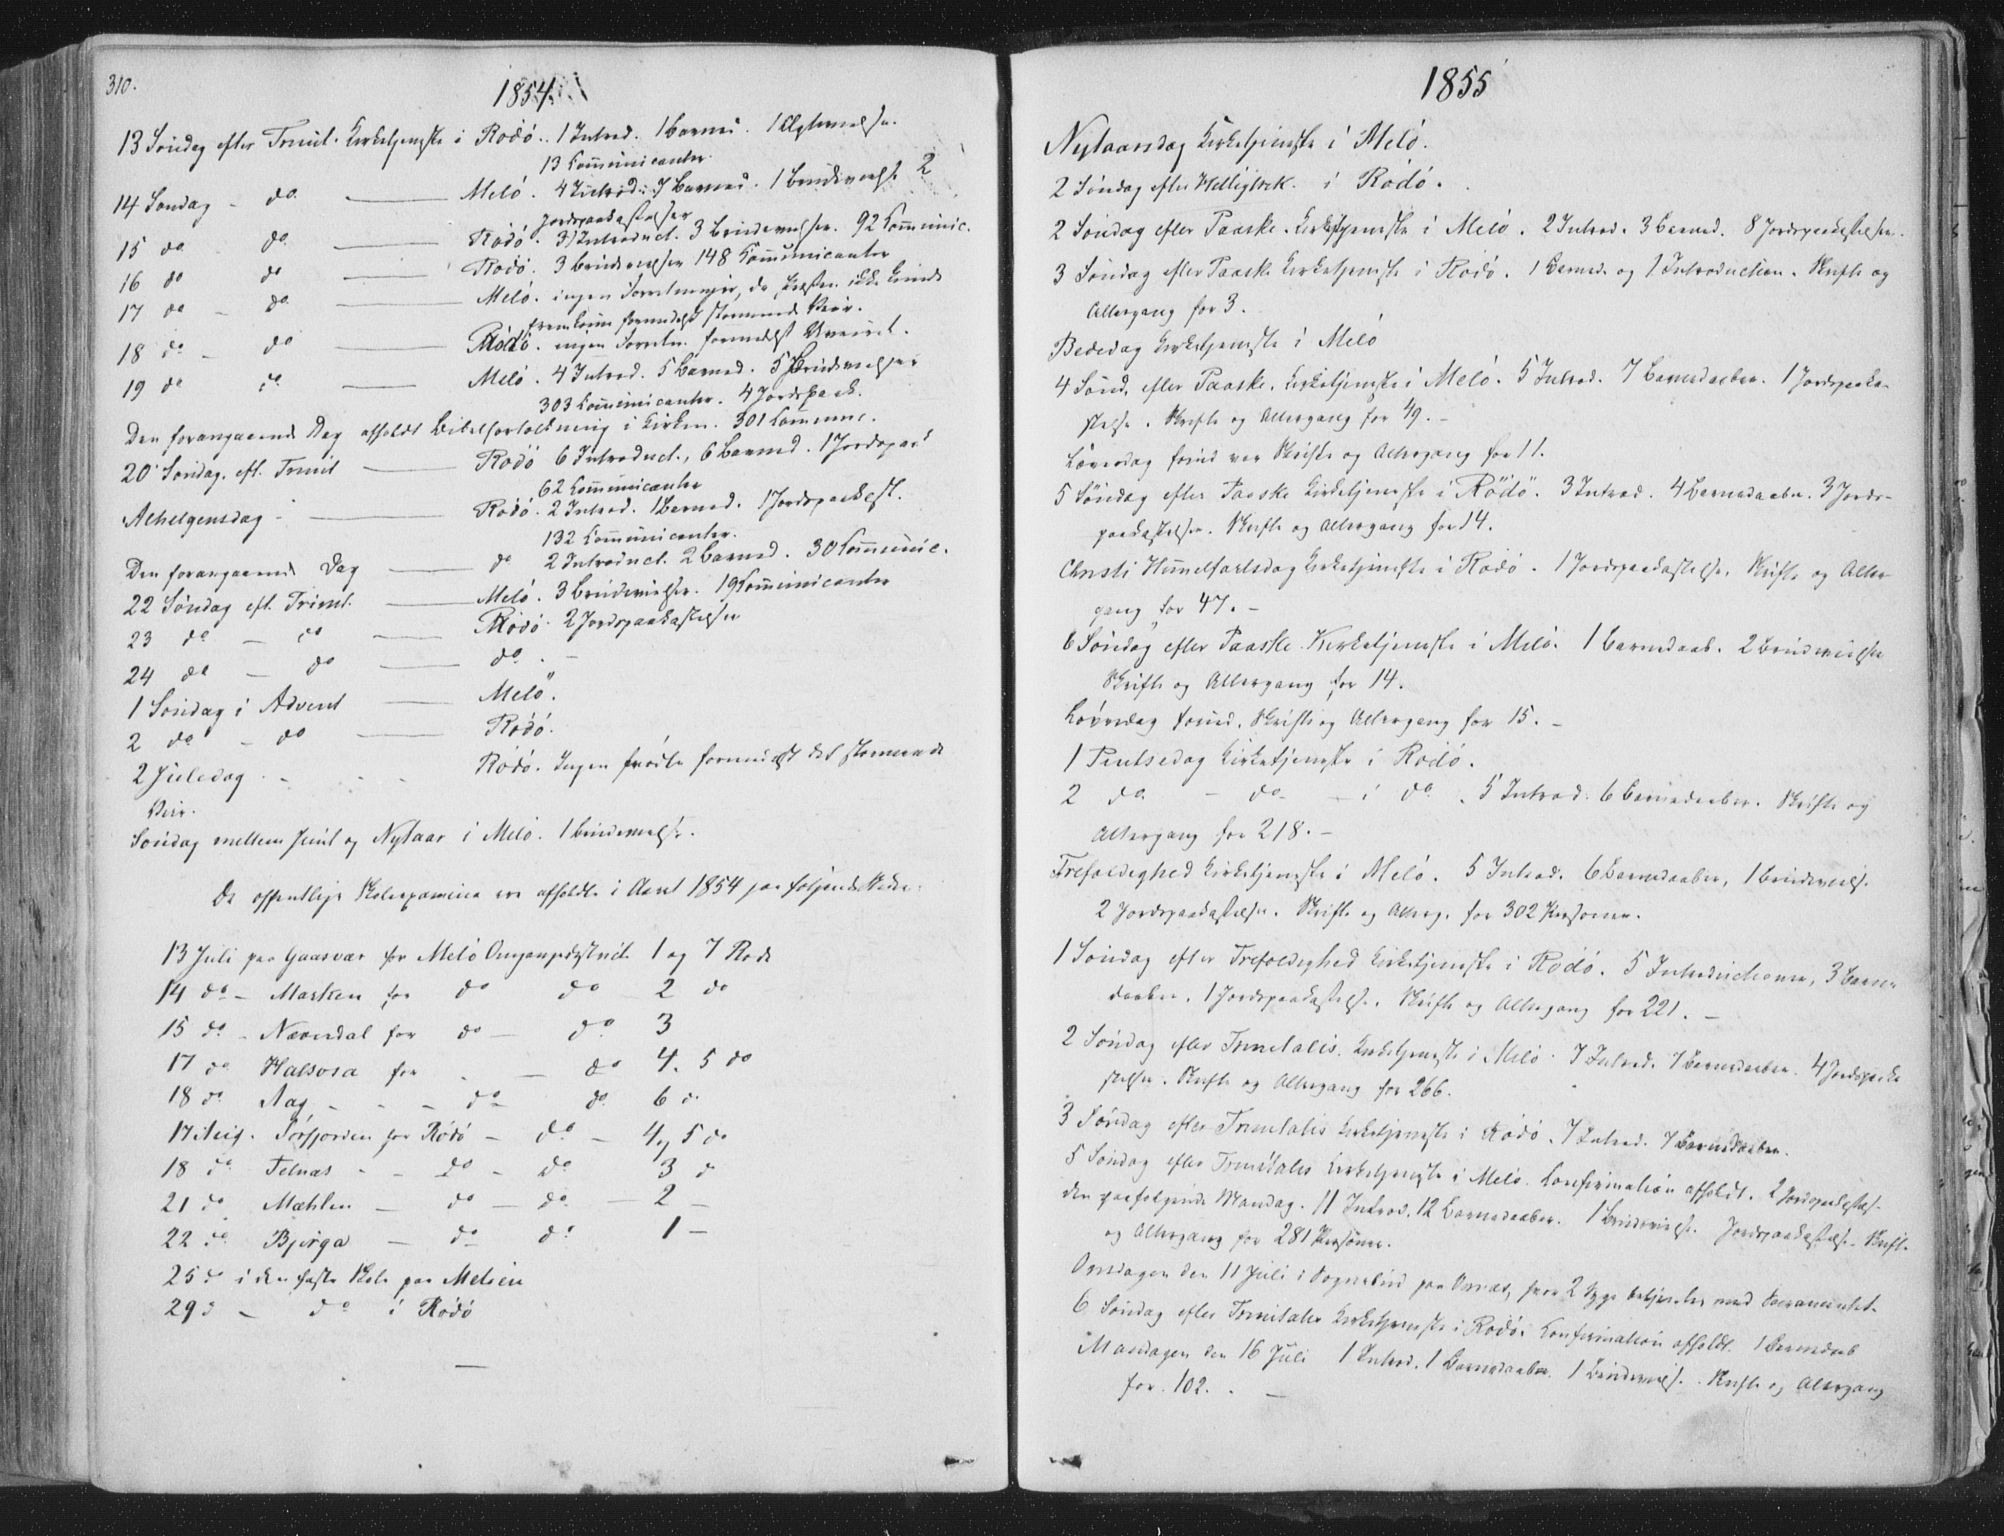 310.
1854.
13 Søndag efter Trinit. Kirketjeneste i Rödö. 1 Introd. 1 Barned. 1 Ægtevielse.
13 Communicanter.
14 Søndag - do. Melö. 4 Introd. 7 Barned. 1 Brudevielse 2
Jordpaakastelser
15 do do. Rödö. 3 Introduct. 3 Brudevielser. 92 Communic.
16 do do Rödö. 3 Brudevielser 148 Communicanter
17 do - do. Melö. ingen Forretninger, da Præsten ikke kunde
fremkomme formedelst stormende Veir.
18 do - do Rödö. ingen Forretn. formedelst Uveiret.
19 do do. Melö. 4 Introd. 5 Barned. 5 Brudevielser
303 Communicanter. 4 Jordspaak.
Den forangaaende Dag afholdt Bibelfortolkning i Kirken. 301 Commun.
20 Søndag. eft. Trinit Rödö 6 Introduct., 6 Barned. 1 Jordspaak
62 Communicanter
Alhelgensdag - Rödö. 2 Introd. 1 Barned. 1 Jordspaakast.
132 Communicanter.
Den forangaaende Dag do 2 Introduct. 2 Barned. 30 Communic.
22 Søndag eft. Trinit. Melö. 3 Brudevielser. 19 Communicanter
23 do - do Rödö. 2 Jordspaakastelser
24 do - do do. -
1 Søndag i Advent Melö.
2 do - do Rödö.
2 Juledag - - - Rödö. Ingen mödte formedelst det stormende
Veir.
Søndag mellem Juul og Nytaar i Melö. 1 Brudevielse.
De offentlige Skoleexamina ere afholdte i Aaret 1854 paa følgende Steder.
13 Juli paa Gaasvær for Melö Omgangsdistrict 1 og 7 Rode
14 do - Masken for do do 2 do
15 do - Næverdal for do - do. 3
17 do Halsosa for - - do 4. 5 do
18 do. Aag, - - - do do. 6 d.
17 Aug. Sørfjorden for Rödö - do - 4, 5 do
18 do. Telnæs - - do - do. 3 d
21 do Mæhlen - do - do. - 2 -
22 do. Bjerga - do do. 1 -
25 d i den faste Skole paa Meløen
29 d - do i Rödö
1855
Nytaarsdag Kirketjeneste i Melö.
2 Søndag efter Helligtrek. i Rödö.
2 Søndag efter Paaske. Kirketjeneste i Melö. 2 Introd. 3 Barned. 8 Jordspaakastelser.
3 Søndag efter Paaske Kirketjeneste i Rödö. 1 Barned. og 1 Introduction. Skrifte og
Altergang for 3.
Bededag Kirketjeneste i Melö
4 Sønd. efter Paaske. Kirketjeneste i Melö. 5 Introd. 7 Barnedaaber. 1 Jordspaaka-
stelse. Skrifte og Altergang for 49. -
Løverdag forud var Skrifte og Altergang for 11.
5 Søndag efter Paaske Kirketjeneste i Rödö. 3 Introd. 4 Barnedaaber. 3 Jords-
paakastelser. Skrifte og Altergang for 14.
Christi Himmelfartsdag Kirketjeneste i Rödö. 1 Jordspaakastelse. Skrifte og Alter-
gang for 47. -
6 Søndag efter Paaske Kirketjeneste i Melö. 1 Barnedaab. 2 Brudevielser
Skrifte og Altergang for 14.
Løverdag forud. Skrifte og Altergang for 15. -
1 Pintsedag Kirketjeneste i Rödö.
2 do. - do - i do. 5 Introd. 6 Barnedaaber. Skrifte og
Altergang for 218. -
Trefoldighed Kirketjeneste i Melö. 5 Introd. 6 Barnedaaber, 1 Brudevielse
2 Jordspaakastelser. Skrifte og Alterg. for 302 Personer.
1 Søndag efter Trefoldighed Kirketjeneste i Rödö. 5 Introductioner, 3 Barne-
daaber. 1 Jordspaakastelse. Skrifte og Altergang for 221. -
2 Søndag efter Trinitatis. Kirketjeneste i Melö. 7 Introd. 7 Barnedaaber. 4 Jordspaaka
stelser. Skrifte og Altergang for 266.
3 Søndag efter Trinitatis Kirketjeneste i Rödö. 7 Introd. 7 Barnedaaber.
5 Søndag efter Trinitatis Kirketjeneste i Melö. Confirmation afholdt. 2 Jordspaakastels.
den paafølgende Mandag. 11 Introd. 12 Barnedaaber. 1 Brudevielse. Jordspaakastelse - Skrifte
og Altergang for 281 Personer.
Onsdagen den 11 Juli i Sognebud paa Ørnæs, hvor 2 syge betjentes med Sacramentet.
6 Søndag efter Trinitatis Kirketjeneste i Rödö. Confirmation afholdt. 1 Barnedaab
Mandagen den 16 Juli 1 Introd. 1 Barnedaaber. 1 Brudevielse. Skrifte og Altergang
for 102. -